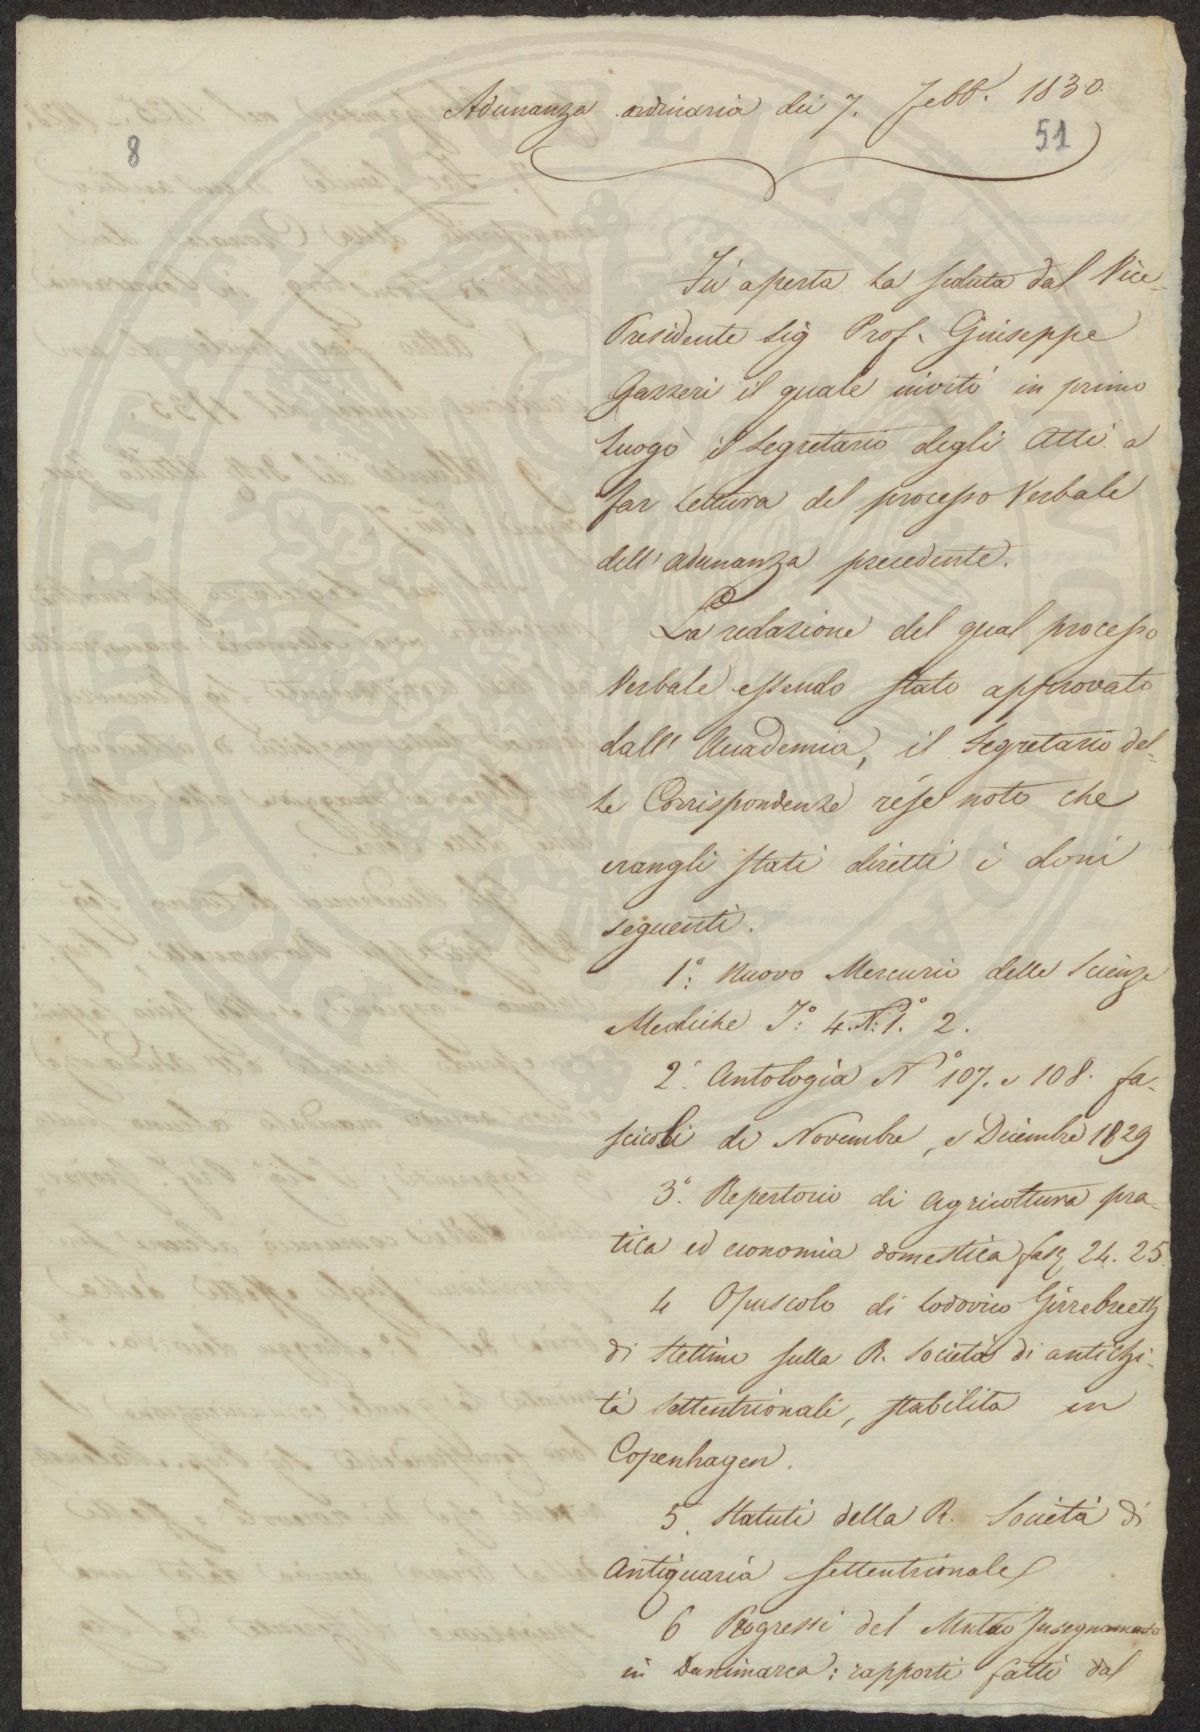 Adunanza ordinaria dei 7. Febb. 1830.
8
51
Fu aperta la seduta dal Vice-
Presidente Sig Prof. Giuseppe
Gazzeri il quale invitò in primo
luogo il Segretario degli Atti a
far lettura del processo Verbale
dell' adunanza precedente.
La redazione del qual processo
Verbale essendo stato approvato
dall' Accademia, il Segretario del-
le Corrispondenze rese noto che
erangli stati diretti i doni
seguenti.
1°: Nuovo Mercurio delle Scienze
Mediche T°: 4. N°: 1. 2.
2° Antologia N° 107. e 108. fa-
scicoli di Novembre, e Dicembre 1829
3° Repertorio di Agricoltura pra-
tica ed economia domestica fasc. 24. 25.
4 Opuscolo di Lodovico
di Stettino sulla R. Società di antichi-
tà settentrionali, stabilita in
Copenhagen.
5. Statuti della R. Società di
Antiquaria Settentrionale
6 Progressi del Mutuo Insegnamento
in Danimarca: rapporti fatti dal